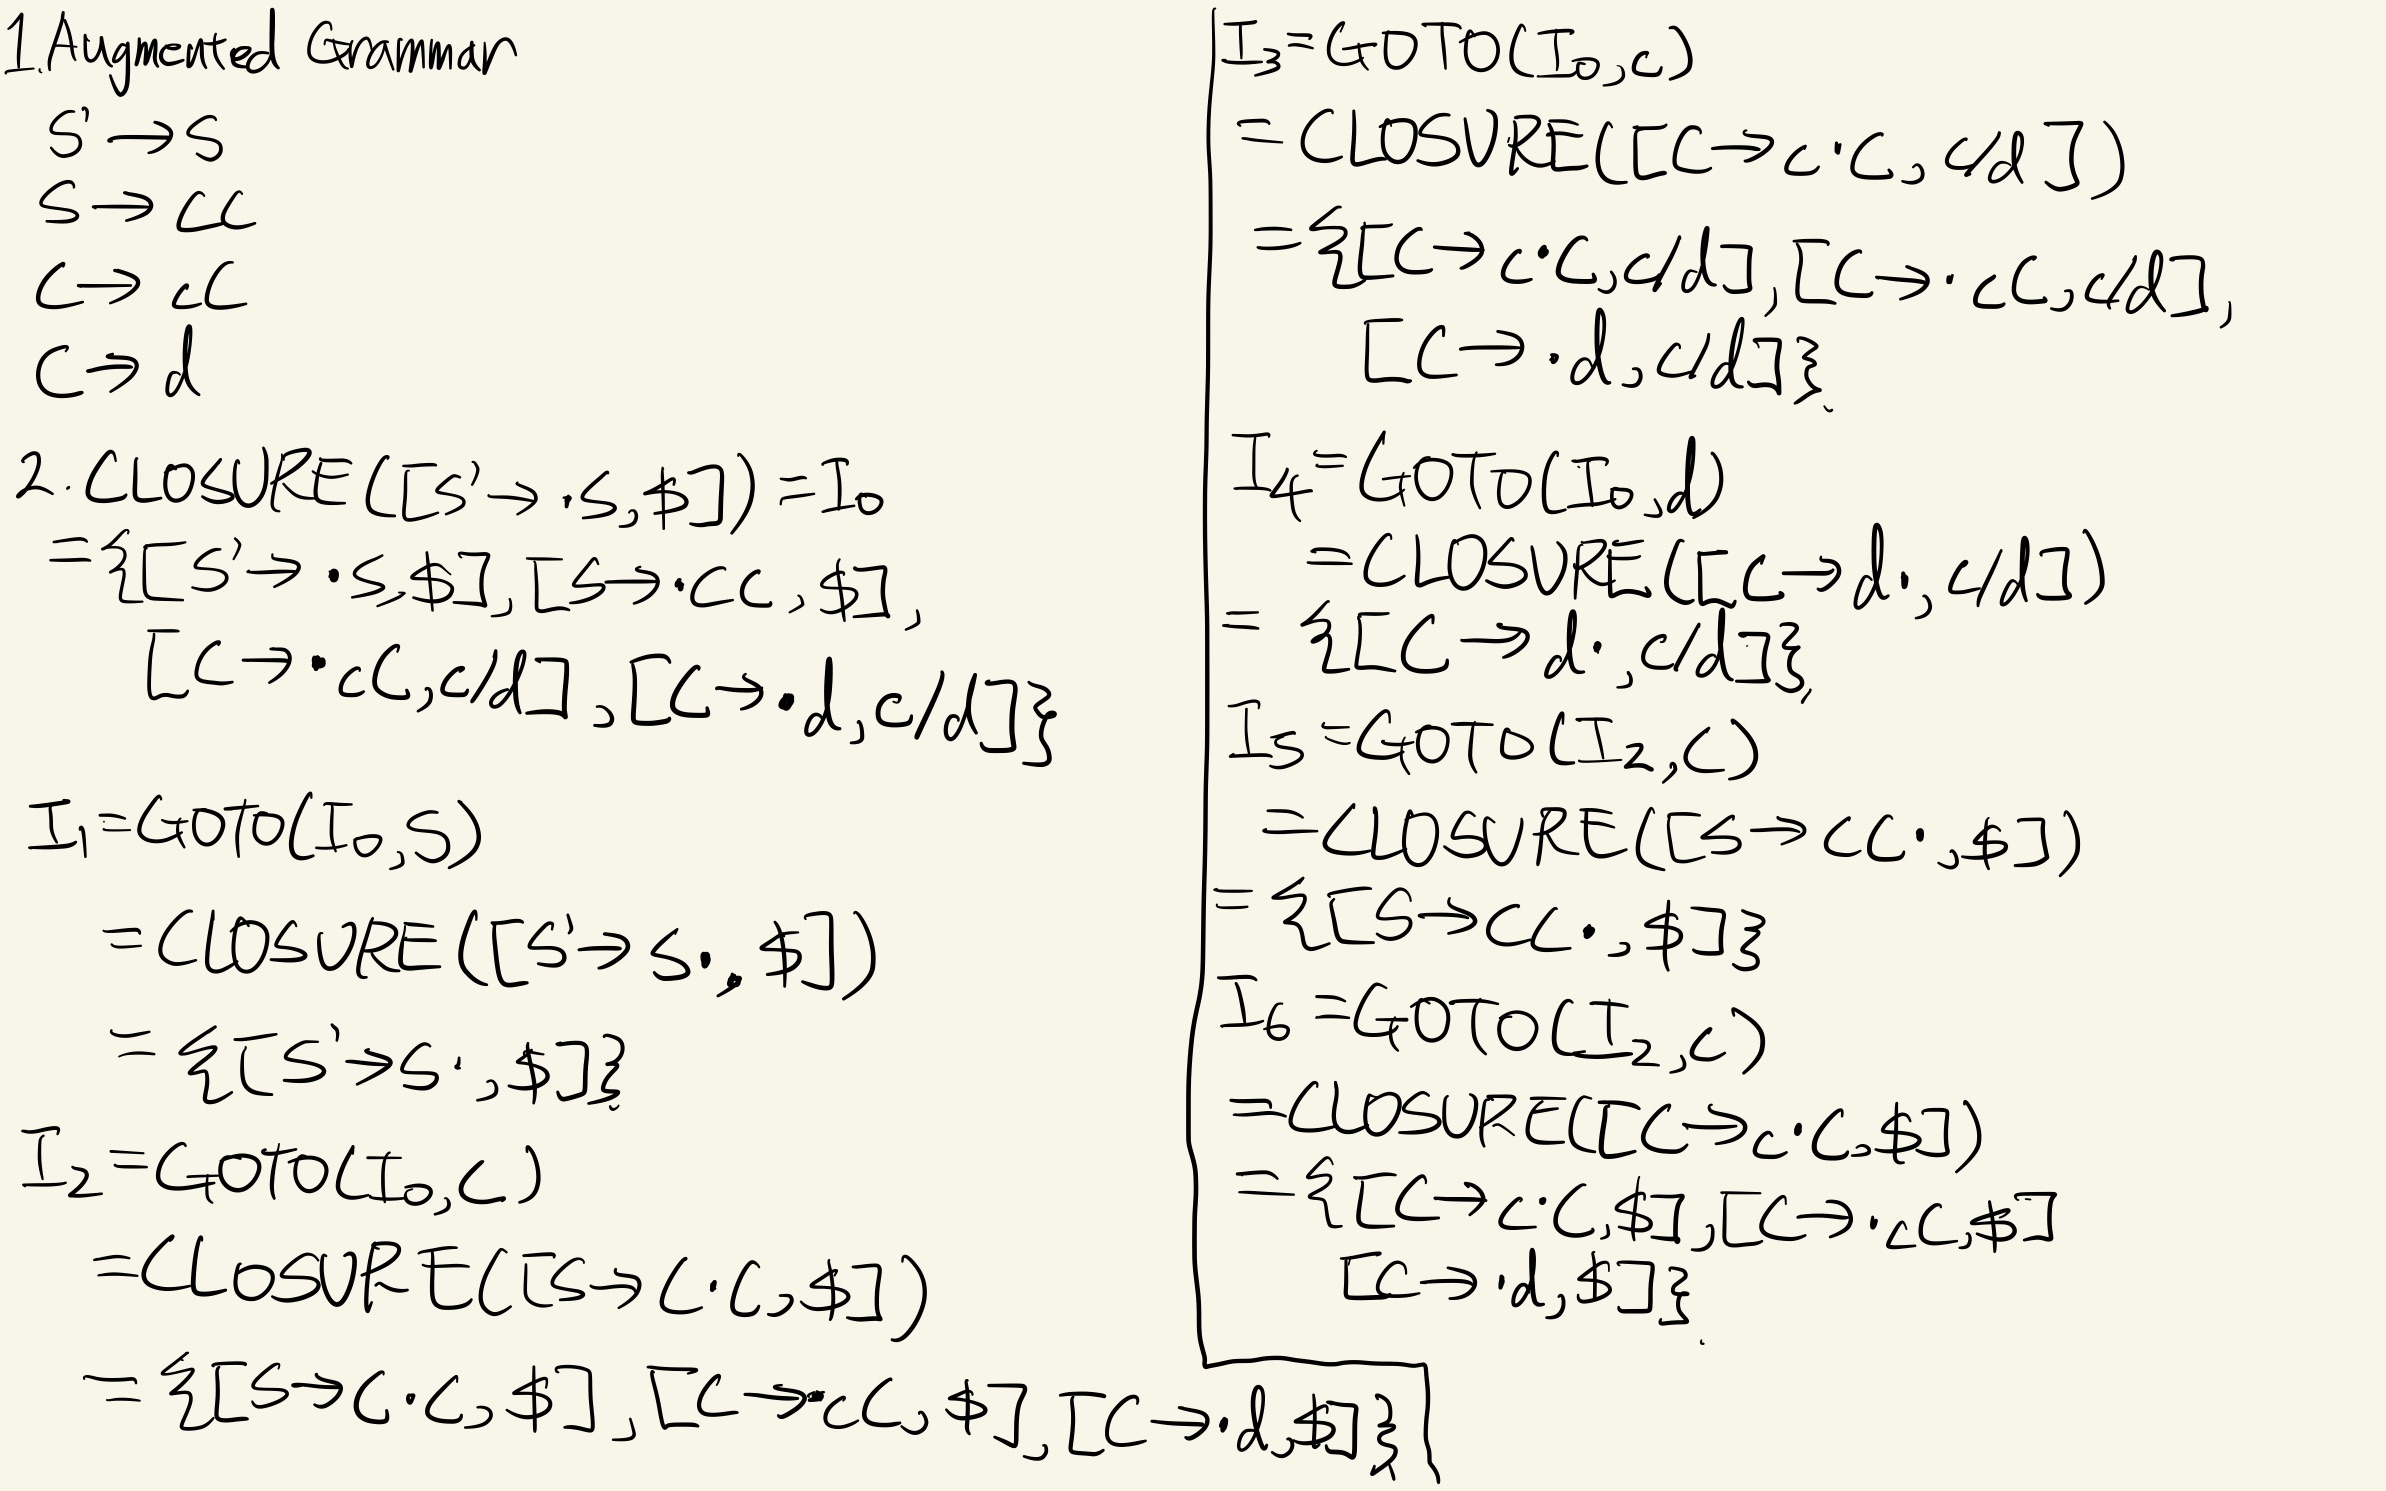 1. Augmented Grammar
S' → S
S → CC
C → cC
C → d
2. CLOSURE([S' → ·S, $]) = I₀
= {[S' → ·S, $], [S → ·CC, $],
[C → ·cC, c/d], [C → ·d, c/d]}
I₁ = GOTO(I₀, S)
= CLOSURE([S' → S·, $])
= {[S' → S·, $]}
I₂ = GOTO(I₀, C)
= CLOSURE([S → C·C, $])
= {[S → C·C, $], [C → ·cC, $], [C → ·d, $]}
I₃ = GOTO(I₀, c)
= CLOSURE([C → c·C, c/d])
= {[C → c·C, c/d], [C → ·cC, c/d],
[C → ·d, c/d]}
I₄ = GOTO(I₀, d)
= CLOSURE([C → d·, c/d])
= {[C → d·, c/d]}
I₅ = GOTO(I₂, C)
= CLOSURE([S → CC·, $])
= {[S → CC·, $]}
I₆ = GOTO(I₂, c)
= CLOSURE([C → c·C, $])
= {[C → c·C, $], [C → ·cC, $]
[C → ·d, $]}